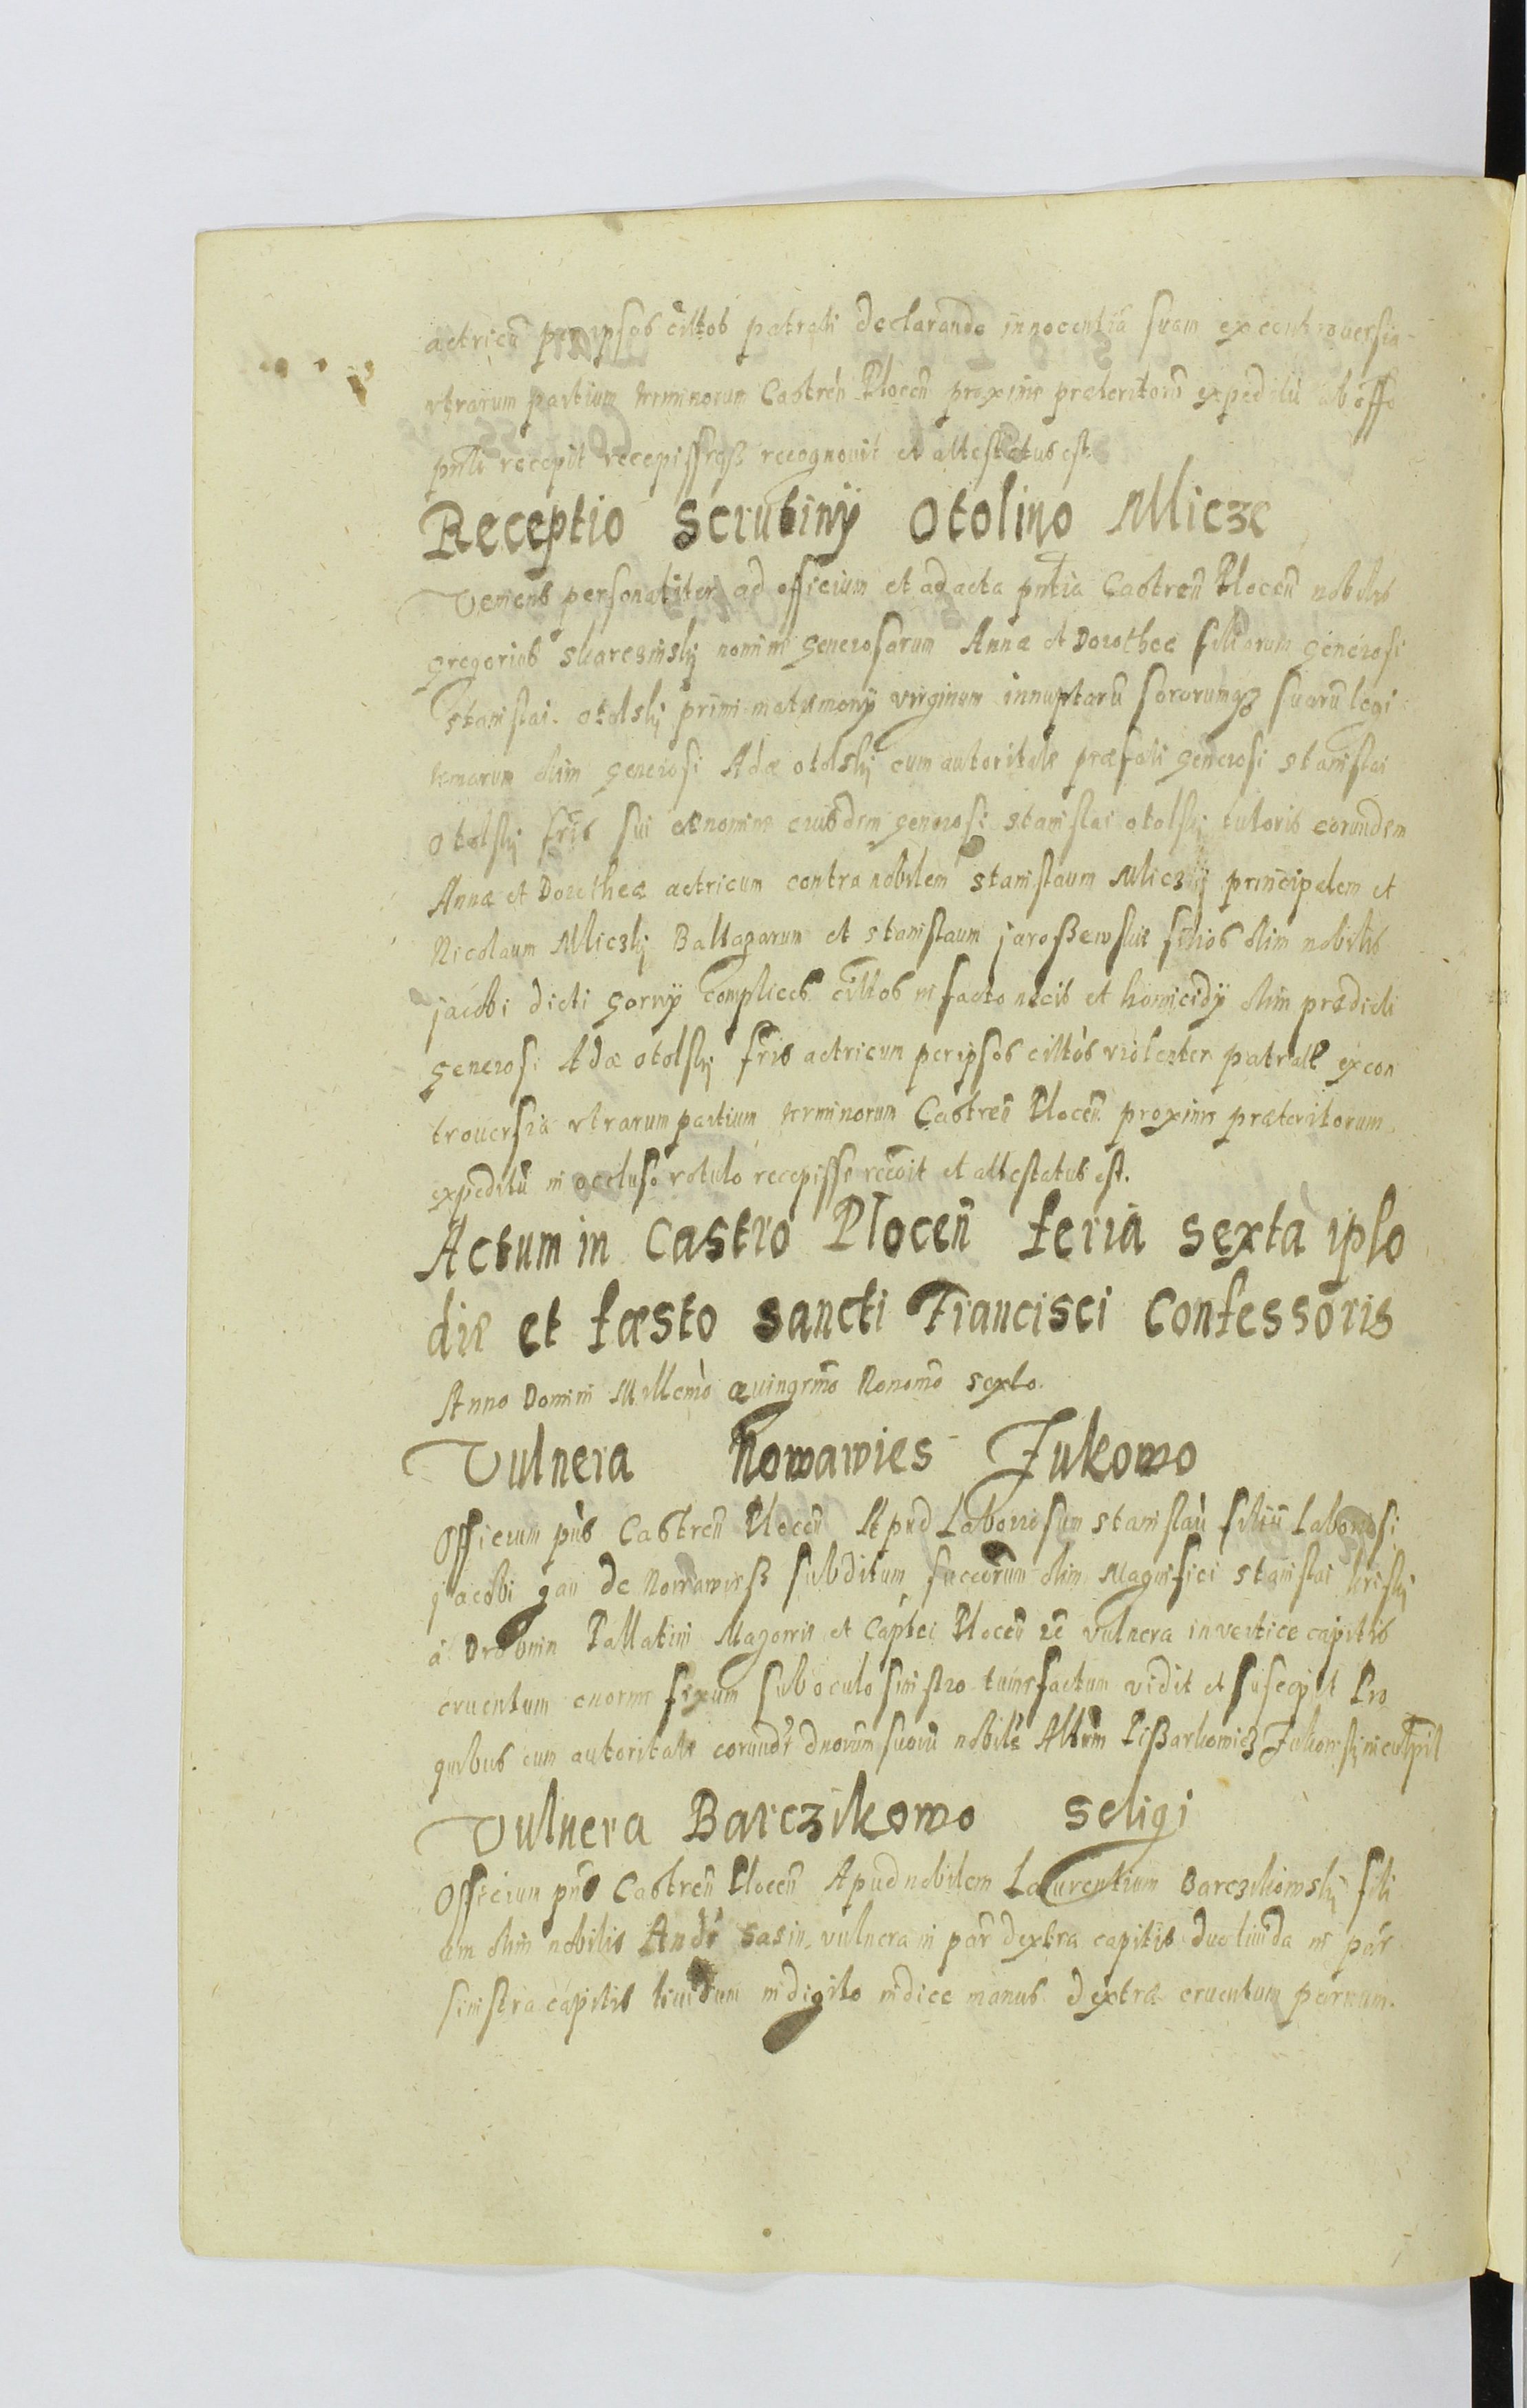 actricū per ipsos cittos patrati declarando innocentiā suam ex controuersia
vtrarum partium terminorum Castreñ Ploceñ proxime præteritorū expeditū ab offo
pnti recepit recepisseqз recognouit et attestatus est.
Receptio Scrutinÿ Otolino Milicze
Veniens personaliter ad officium et ad acta pntia Castreñ Ploceñ nobilis
gregorius nomine generosarum Annæ et Dorotheæ filiarum generosi
Stanislai Otolskÿ primi matrimonÿ virginum innuptarū sororumqз suarū legi
temarum olim generosi Adæ Otolskÿ cum autoritate præfati generosi Stanislai
Otolskÿ fris sui et nomine eiusdem generosi Stanislai Otolskÿ tutoris earundem
Annæ et Dorotheæ actricum contra nobilem Stanislaum principalem et
Nicolaum Baltazarum et Stanislaum jaroßewskie filios olim nobilis
jacobi dicti gornÿ complices cittos in facto necis et homicidÿ olim prædicti
generosi Adæ Otolskÿ fris actricum per ipsos cittos violenter patratæ ex con
trouersia vtrarum partium terminorum Castreñ Ploceñ proxime præteritorum
expeditū in occluso rotulo recepisse recoit et attestatus est.
Actum in Castro Ploceñ feria sexta ipso
die et fæsto sancti Francisci Confessoris
Anno Domini Millemo quingemo Nonomo sexto.
Vulnera Nowawies Jukowo
Officium pns Castreñ Ploceñ Apud Laboriosum Stanislaū filiū Laboriosi
jacobi gan de Nowawiesz subditum succorum olim Magnifici Stanislai
a Drobnin Pallatini Mazoviæ et Captei Ploceñ rc vulnera in vertice capitis
cruentum enorme fixum sub oculo sinistro tumefactum vidit et suscepit Pro
quibus cum autoritate eorunde dnorum suorū nobile inculpit
Vulnera Barczikowo Seligi
Officium pns Castreñ Ploceñ Apud nobilem Laurentium Barczikowskÿ fili
um olim nobilis Andr Sasin vulnera in par dextra capitis duo liuida in par
sinistra capitis liuidum in digito indice manus dextræ cruentum paruum.